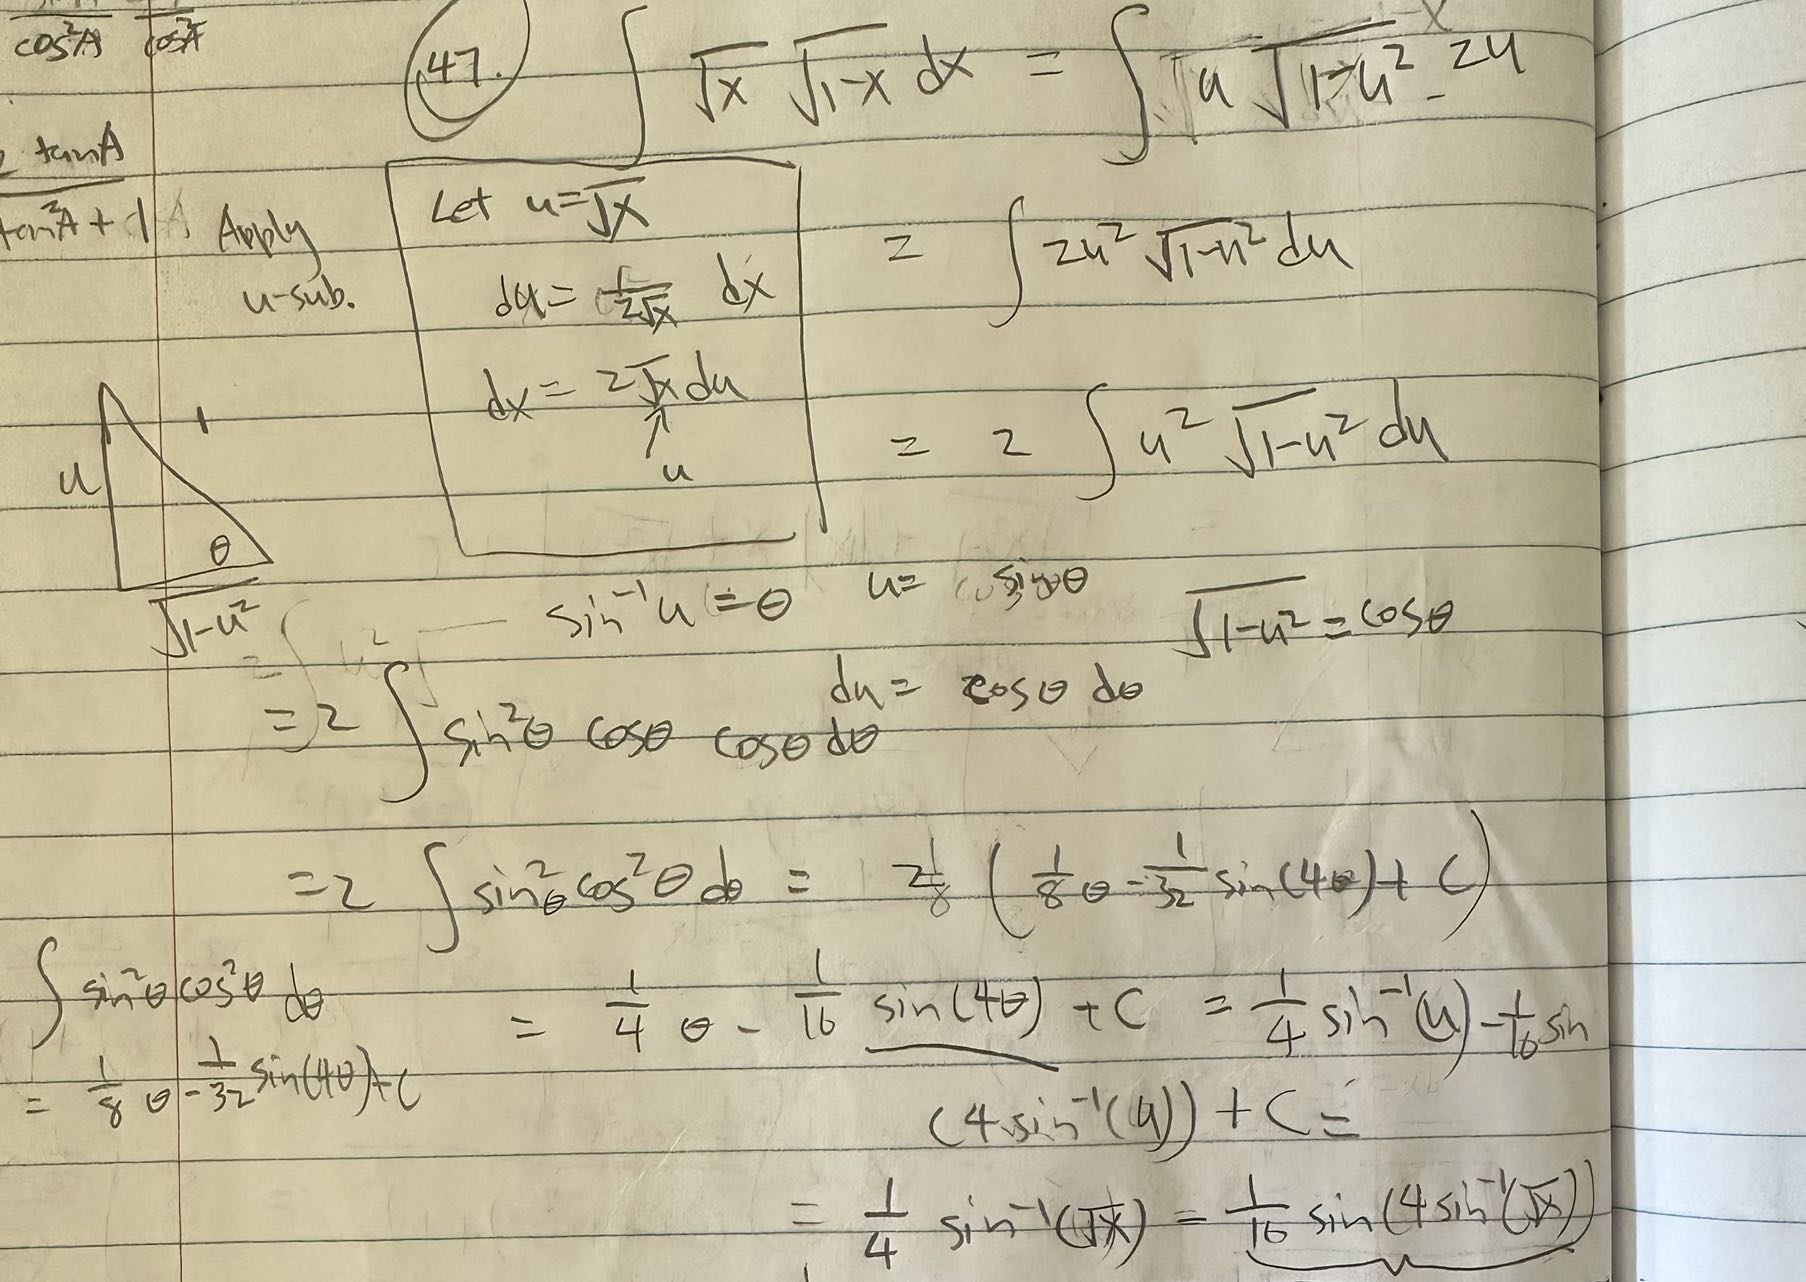 cos²A cos²A
tanA
tan²A + 1
47. ∫ √x √1-x dx = ∫ u √1-u² 2u
Apply
u-sub.
Let u=√x
du= 1/2√x dx
dx= 2√x du
↑
u
= ∫ 2u² √1-u² du
= 2 ∫ u² √1-u² du
u 1 θ
√1-u²
sin⁻¹u = θ u= sinθ √1-u² = cosθ
du= cosθ dθ
=2 ∫ sin²θ cosθ cosθ dθ
=2 ∫ sin²θ cos²θ dθ = 2 1/8 ( 1/8 θ - 1/32 sin(4θ)+ C )
∫ sin²θ cos²θ dθ
= 1/8 θ - 1/32 sin(4θ)+C
= 1/4 θ - 1/16 sin(4θ) + C = 1/4 sin⁻¹(u) - 1/16 sin
(4 sin⁻¹(u)) + C =
= 1/4 sin⁻¹(√x) = 1/16 sin(4 sin⁻¹(√x))